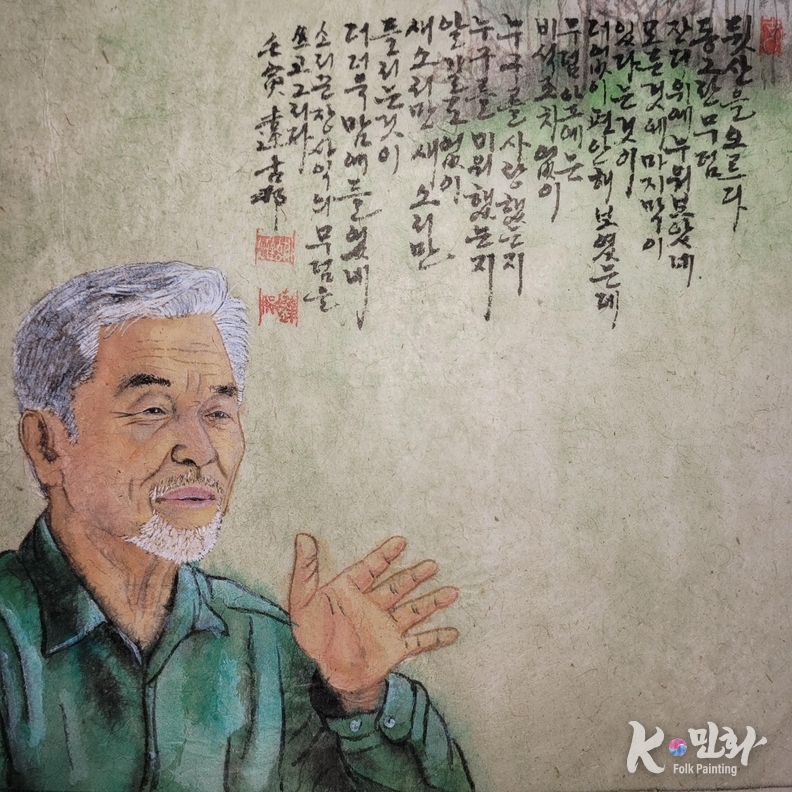 뒷산을 오르다
동그란 무덤
잔디 위에 누워보았네.
모든것에 마지막이
있다는것이
더없이 편안해 보였는데
무덤 앞에는
비석조차 없이
누구를 사랑했는지
누구를 미워했는지
알길도 없이
새소리만 새 소리만
들리는것이
더더욱 맘에 들었네
소리꾼 장사익의 무덤을
쓰고그리다
壬寅
K민화
Folk Painting